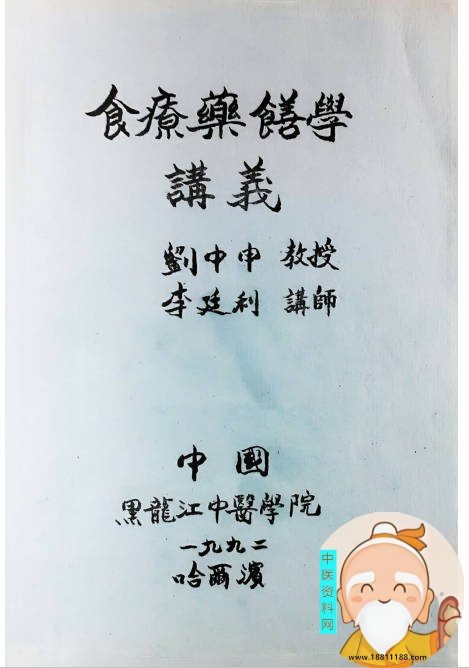 食療藥饍學
講義
劉中申 教授
李廷利 講師
中國
黑龍江中醫學院
一九九二
哈爾濱
中医资料网
www.18811188.com